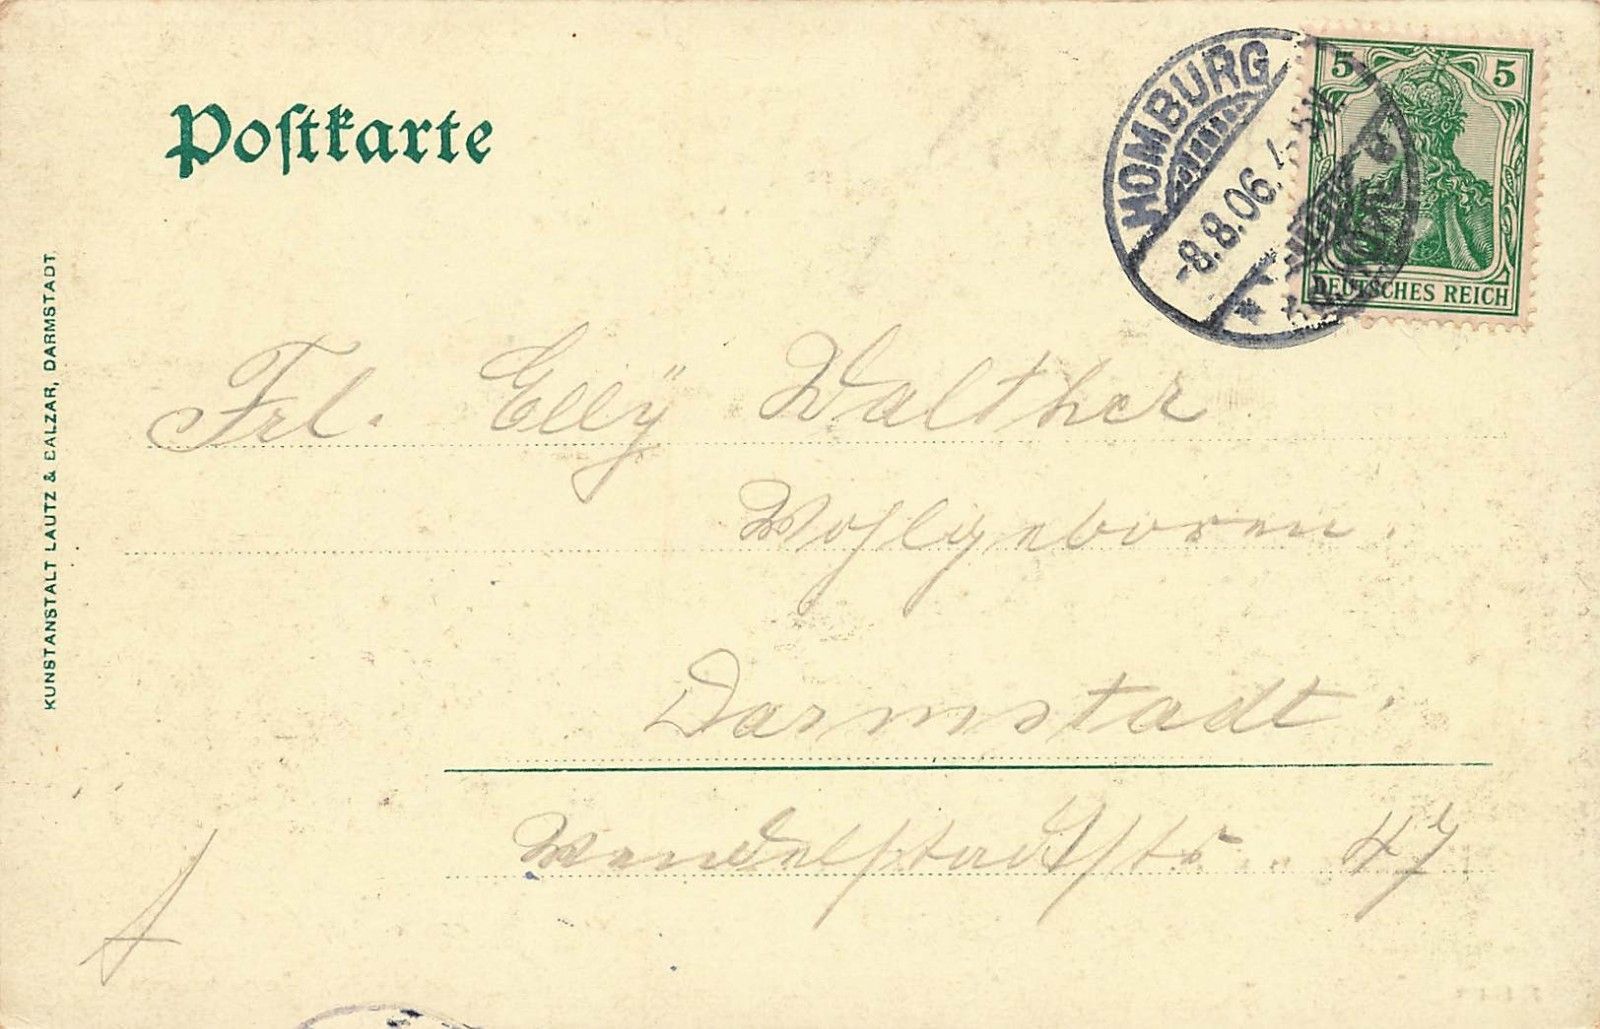 Postkarte
HOMBURG
-8.8.06.
5 5
DEUTSCHES REICH
Frl. Ellÿ Walther
Wohlgeboren.
Darmstadt.
Wendelstadtstr. 47
KUNSTANSTALT LAUTZ & BALZAR, DARMSTADT.